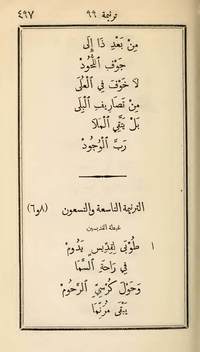 ترنيمة ٩٩ ٤٩٧
مِنْ بَعْدِ ذَا إِلَى
جَوْفِ ٱللُّحُودْ
لَا خَوْفَ فِي ٱلْعُلَى
مِنْ تَصَارِيفِ ٱلْبِلَى
بَلْ يَتَّقِي ٱلْمَلَا
رَبَّ ٱلْوُجُودْ
الترنيمة التاسعة والتسعون (٨و٦)
غبطة القديسين
١ طُوبَى لِقِدِّيسٍ يَدُومْ
فِي رَاحَةِ ٱلسَّمَا
وَحَوْلَ كُرْسِيِّ ٱلرَّحُومْ
يَبْقَى مُرَنِّمَا